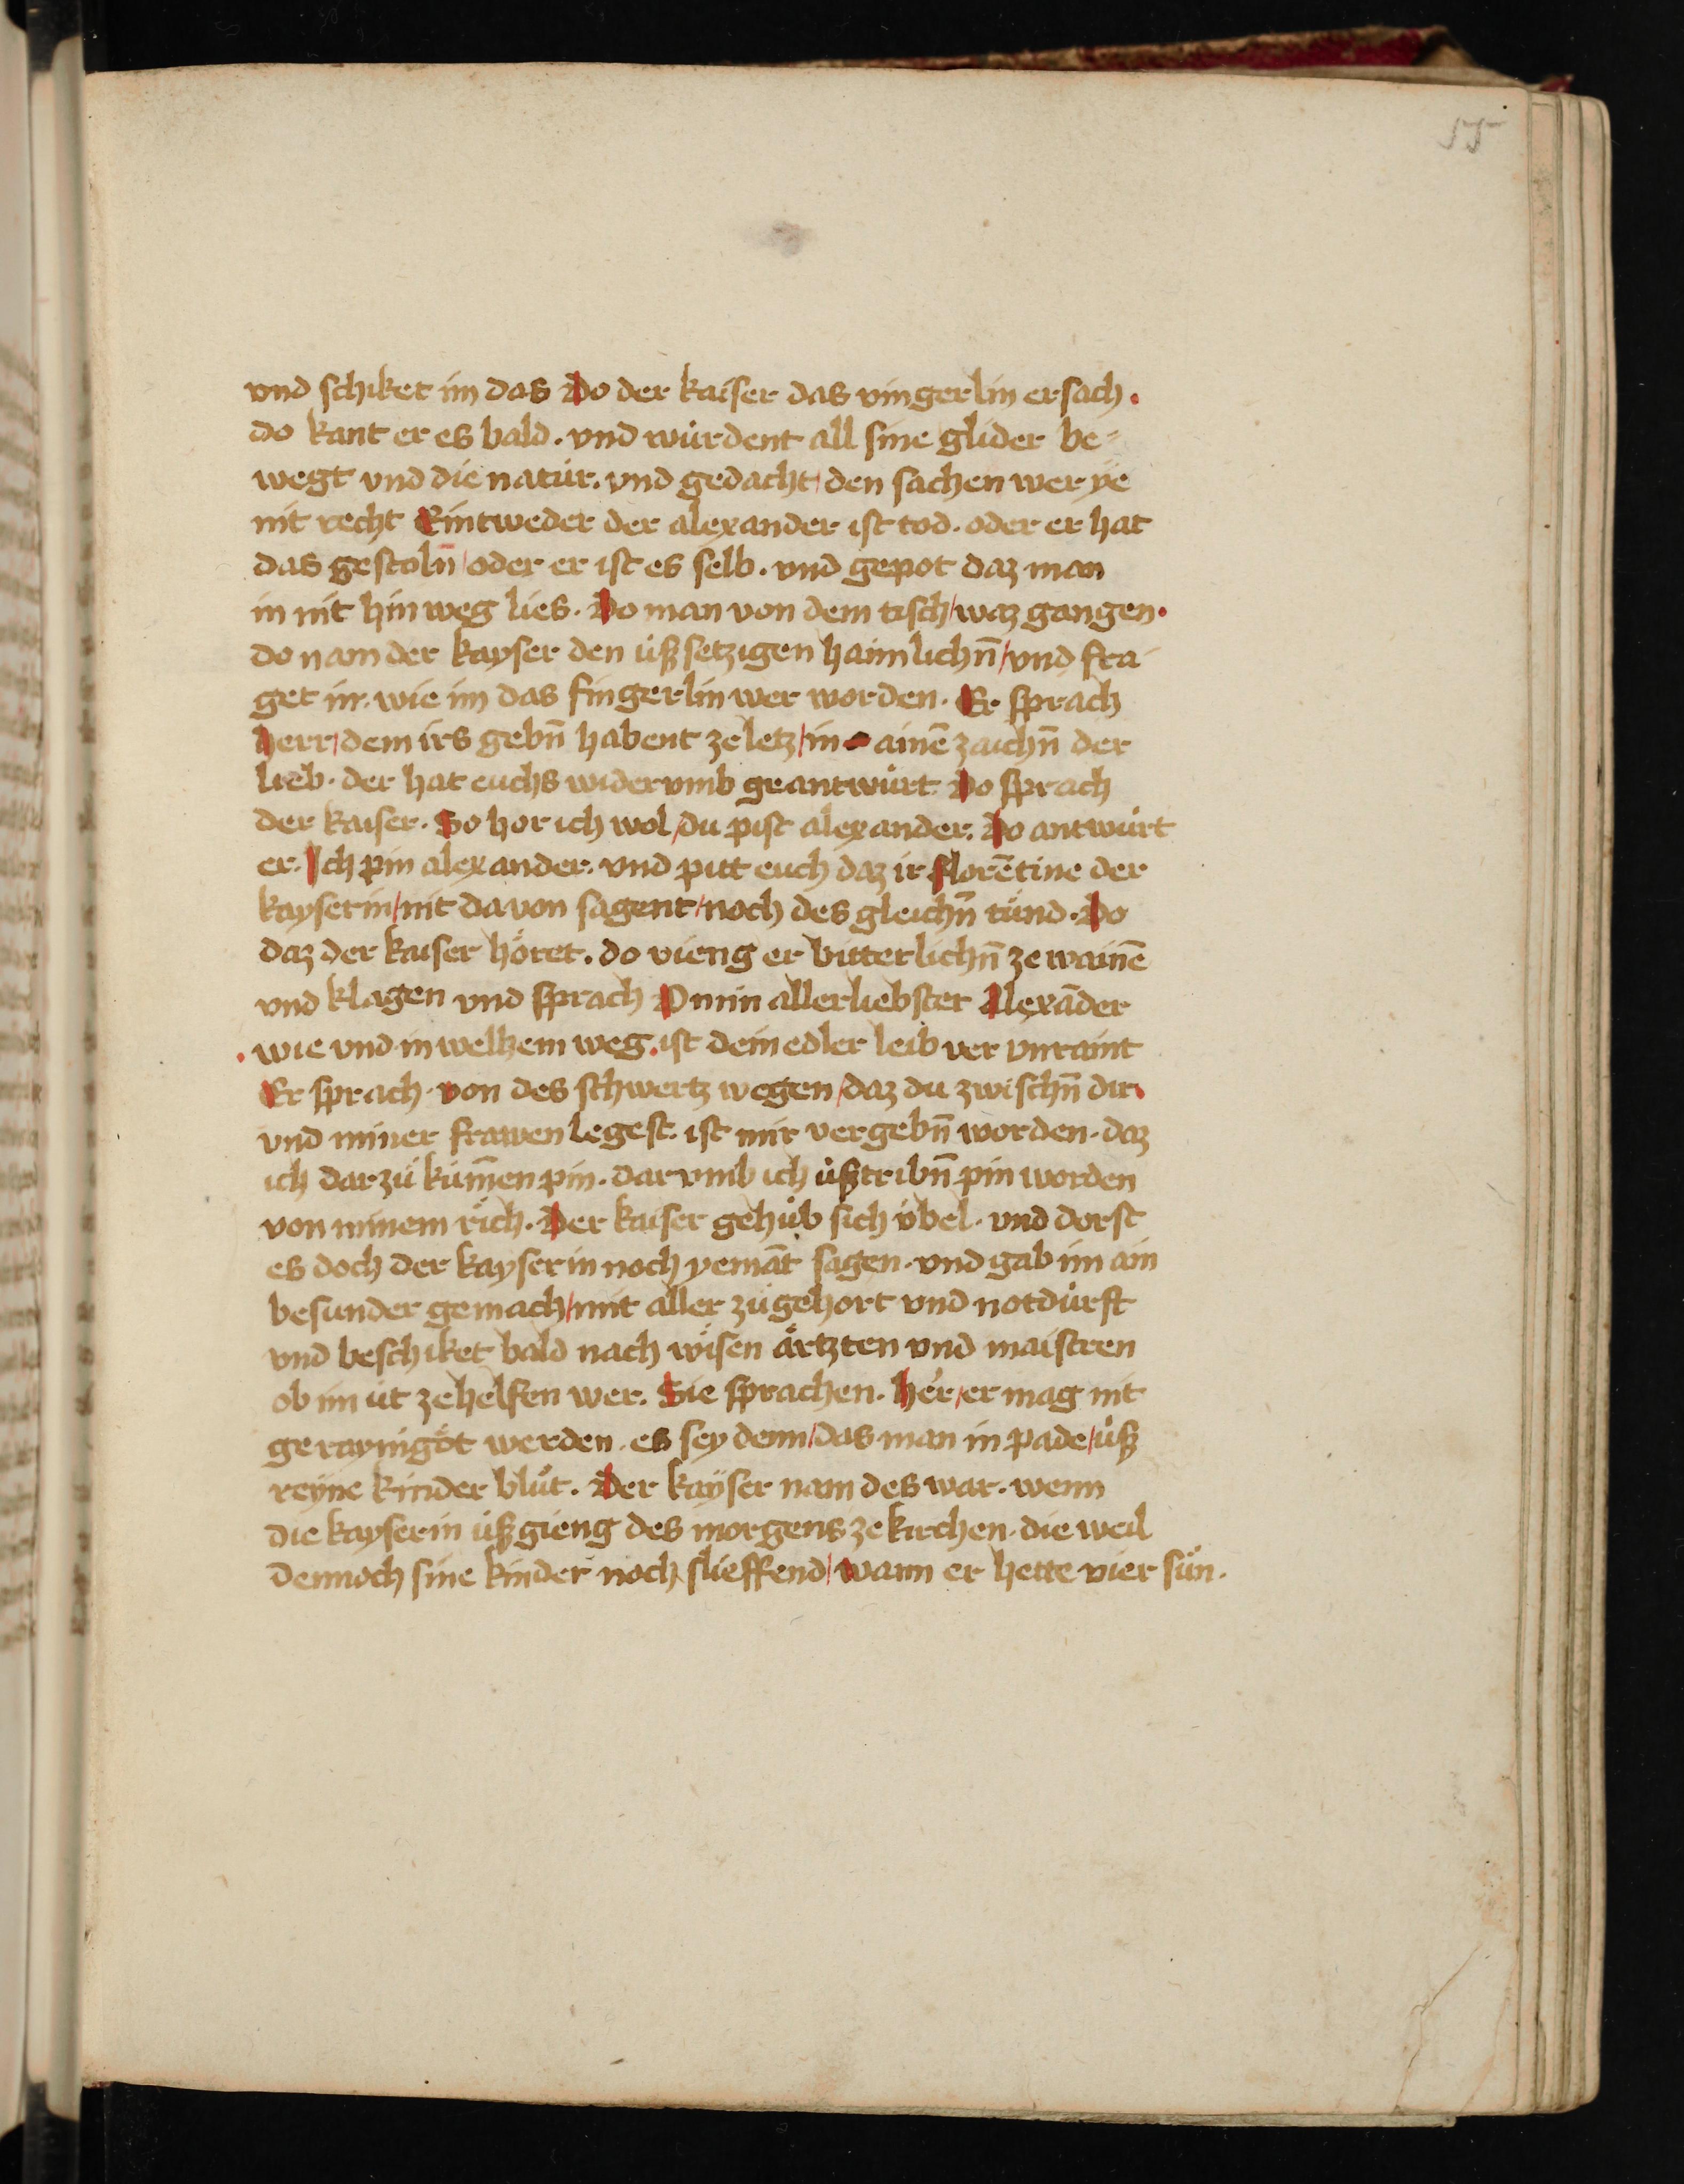 55
vnd schiket im das Do der kaiser das vingerlin ersach.
do kant er es bald. vnd wurdent all sine glider be-
wegt vnd die natur. vnd gedacht den sachen wer ye
nit recht Eintweder der alexander ist tod. oder er hat
das gestoln̄ / oder er ist es selb. vnd gepot daz man
in nit hin weg lies. Do man von dem tisch / waz gangen.
do nam der kayser den ußsetzigen haimlichn̄ / vnd fra-
get in. wie im das fingerlin wer worden. Er sprach
herr / dem irs gebn̄ habent ze letz / in ainē zaichn̄ der
lieb. der hat euchs widervmb geantwurt. Do sprach
der kaiser. So hor ich wol / du pist alexander. Do antwürt
er. Ich pin alexander. vnd pitt euch daz ir florētine der
kayserin / nit da von sagent / noch des gleichn̄ tünd. Do
daz der kaiser höret. do vieng er bitterlichn̄ ze wainē
vnd klagen vnd sprach O min allerliebster Alexāder
. wie vnd in welhem weg. ist dein edler leib ver vnraint
Er sprach. von des schwertz wegen / daz du zwischn̄ dir.
vnd miner frawen legest. ist mir vergebn̄ worden. daz
ich dar zu kum̄en pin. dar vmb ich ußtribn̄ pin worden
von minem rich. Der kaiser gehub sich übel. vnd dorst
es doch der kayserin noch yemāt sagen. vnd gab im ain
besunder gemach / mit aller zugehort vnd notdurft
vnd beschiket bald nach wisen ärtzten vnd maistren
ob im üt ze helfen wer. Sie sprachen. her / er mag nit
geraynigöt werden. es sey denn / das man in pade / uß
reyne kinder blut. Der kayser nam des war. wenn
die kayserin ußgieng des morgens ze kirchen. die weil
dennoch sine kinder noch slieffend / wann er hette vier sün.